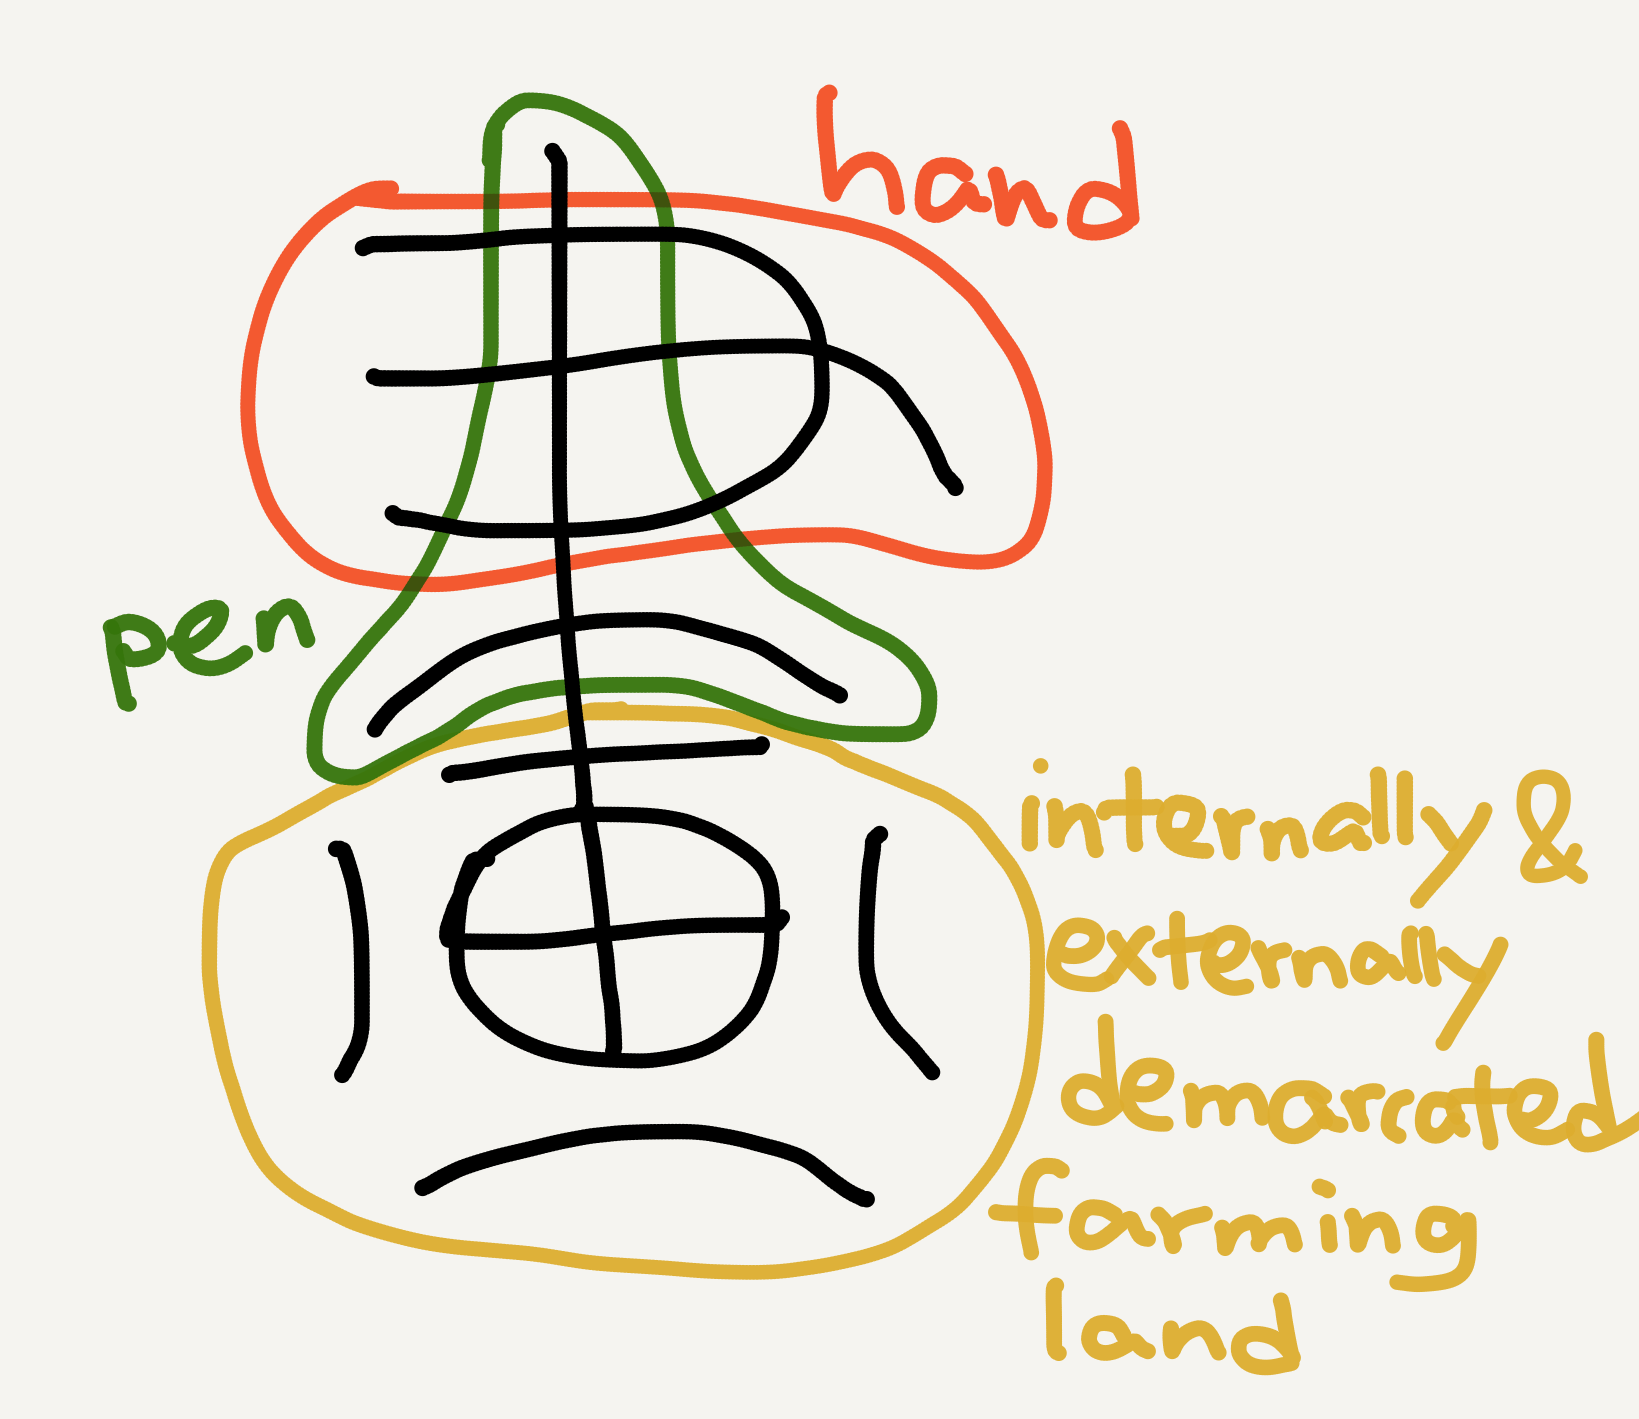 hand
pen
internally &
externally
demarcated
farming
land